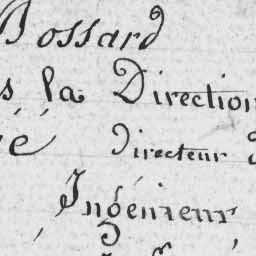 Bossard
s la Direction
é directeur
Ingénieur